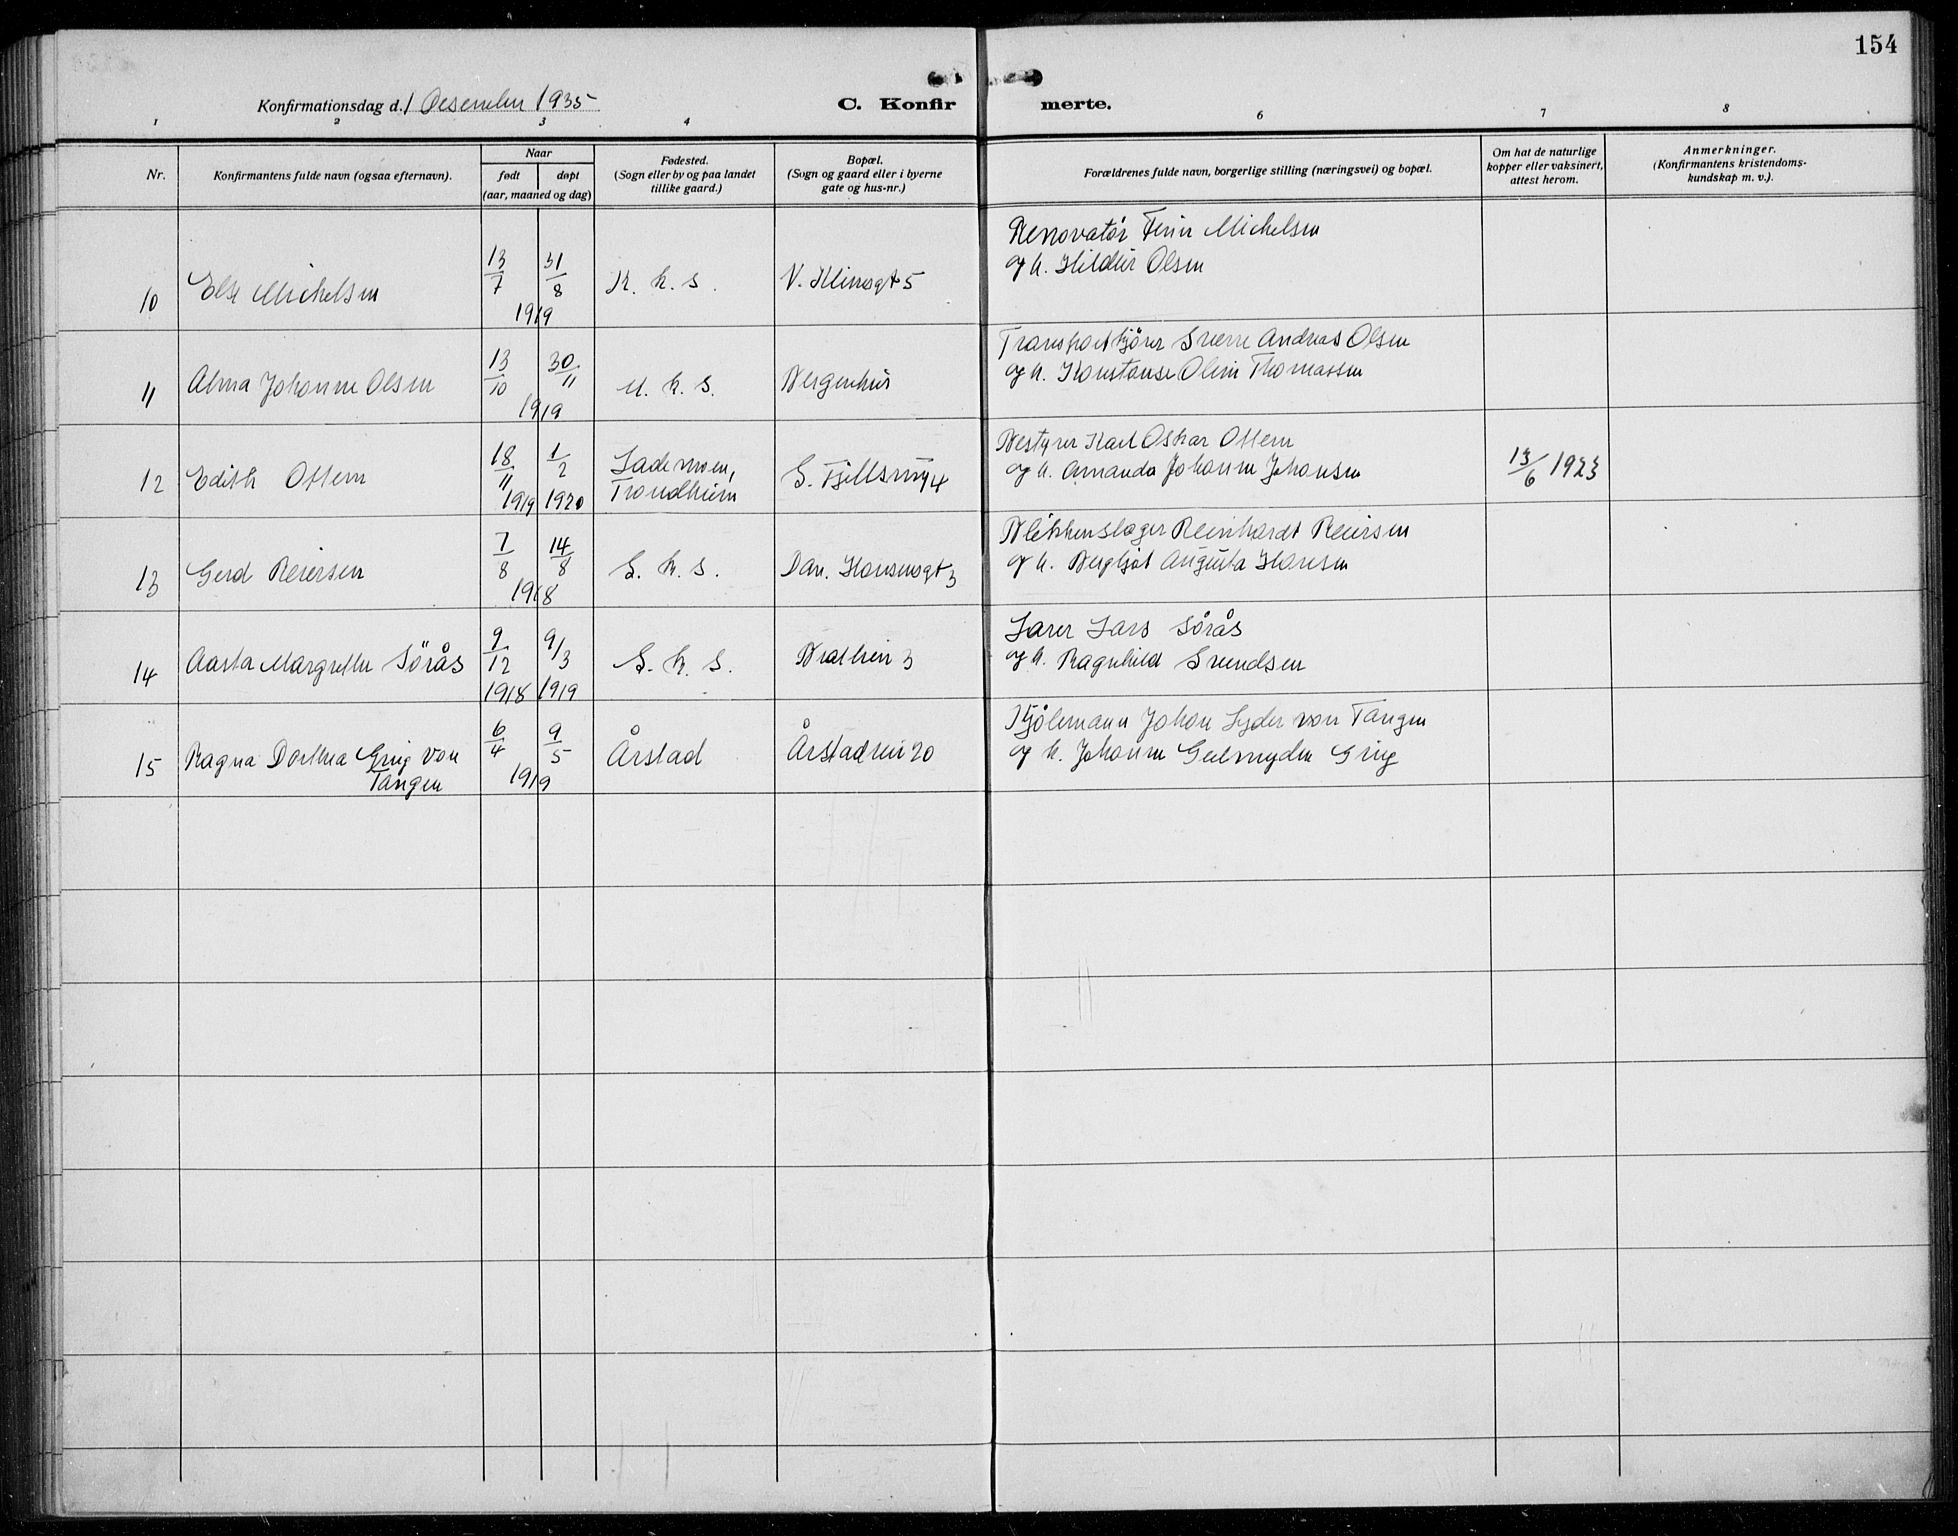 154
Konfirmationsdag d. 1 Desember 1935
C. Konfir merte.
1 2 3 4 6 7 8
Nr.
Konfirmantens fulde navn (ogsaa efternavn).
Naar
født døpt
(aar, maaned og dag)
Fødested.
(Sogn eller by og paa landet
tillike gaard.)
Bopæl.
(Sogn og gaard eller i byerne
gate og hus-nr.)
Forældrenes fulde navn, borgerlige stilling (næringsvei) og bopæl.
Om hat de naturlige
kopper eller vaksinert,
attest herom.
Anmerkninger.
(Konfirmantens kristendoms-
kundskap m. v.).
10 Else Michelsen 13/7 31/8 1919 K. k. s. V. Klimsgt 5
Renovatör Finn Michelsen
og h. Hildur Olsen
11 Alma Johanne Olsen 13/10 30/11 1919 M. k. s. Bergenhus
Transportkjörer Sverre Andreas Olsen
og h. Konstanse Oline Thomassen
12 Edith Ottem 18/11 1919 1/2 1920 Lademoen,
Trondheim S. Fjellsmug 4
Bestyrer Karl Oskar Ottem
og h. Amanda Johanne Johansen
13/6 1923
13 Gerd Reiersen 7/8 14/8 1918 S. k. s. Dan. Hansensgt 3
Blikkenslager Reinhardt Reiersen
og h. Bergljot Augusta Hansen
14 Aasta Margrethe Sörås 9/12 1918 9/3 1919 S. k. s. Bratlien 3
Larer Lars Sörås
og h. Ragnhild Svendsen
15 Ragna Dorthea Grieg von
Tangen 6/4 9/5 1919 Årstad Årstadveien 20
Hjölemann Johan Lyder von Tangen
og h. Johanne Geelmyden Grieg